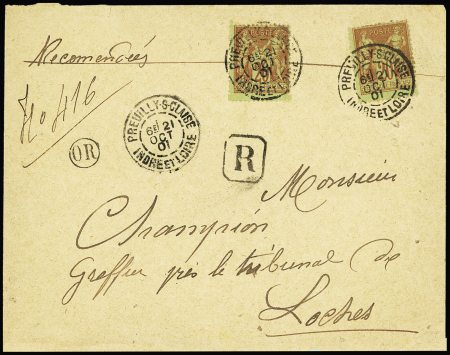 Recomendrés
No 416
PREUILLY-S-CLAISE
6E 21
OCT
01
INDRE ET LOIRE
PREUILLY-S-CLAISE
6E 21
OCT
01
INDRE ET LOIRE
POSTES
PREUILLY-S-CLAISE
6E 21
OCT
01
INDRE ET LOIRE
OR
R
Monsieur
Champion
Greffier près le tribunal de
Loches